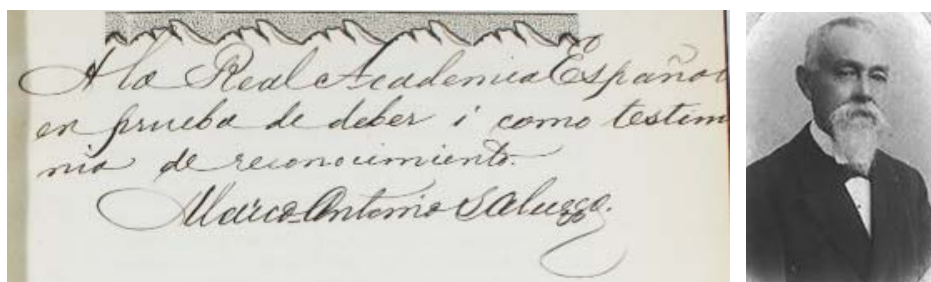 A la Real Academia Español
en prueba de deber i como testim
nio de reconocimiento.
Marco-Antonio Saluzzo.